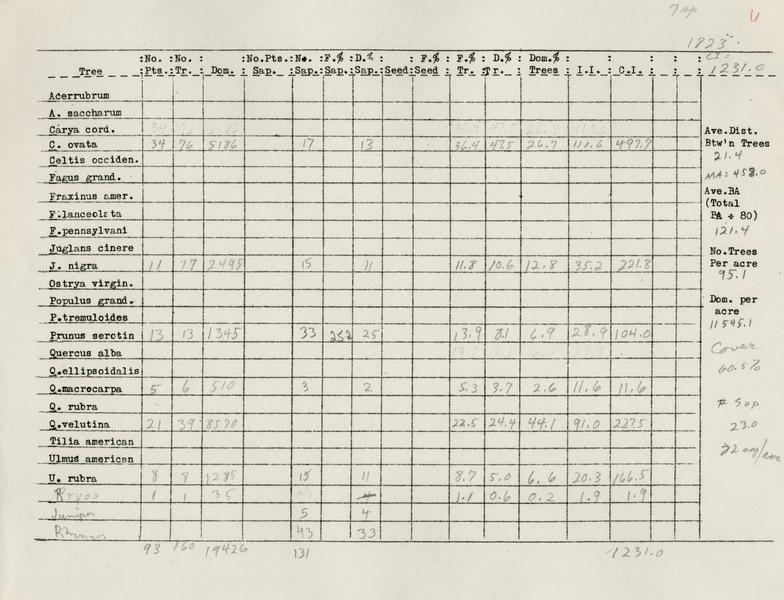 7 sp
1823
:No. :No. : :No.Pts.:No. :F.% :D.% : : F.% : F.% : D.% : Dom.% : : : : : CI:
Tree :Pts.:Tr. : Dom. : Sap. :Sap.:Sap.:Sap.:Seed:Seed : Tr. :Tr. : Trees : I.I. : C.I. : : : 1231.0
Acerrubrum
A. saccharum
Carya cord.
Ave.Dist.
C. ovata 34 76 5186 17 13 36.4 47.5 26.7 110.6 497.7 Btw'n Trees
Celtis occiden. 21.4
Fagus grand. MA: 458.0
Fraxinus amer. Ave.BA
(Total
F.lanceolata BA ÷ 80)
F.pennsylvani 121.4
Juglans cinere No.Trees
J. nigra 11 17 2495 15 11 11.8 10.6 12.8 35.2 221.8 Per acre
Ostrya virgin. 95.1
Populus grand. Dom. per
P.tremuloides acre
11545.1
Prunus serotin 13 13 1345 33 252 25 13.9 8.1 6.9 28.9 104.0
Quercus alba Cover
Q.ellipsoidalis 60.5%
Q.macrocarpa 5 6 510 3 2 5.3 3.7 2.6 11.6 11.6
Q. rubra # Sap
Q.velutina 21 39 8570 22.5 24.4 44.1 91.0 227.5 23.0
Tilia american
Ulmus american
U. rubra 8 8 1285 15 11 8.7 5.0 6.6 20.3 166.5
1 1 35 1.1 0.6 0.2 1.9 1.9
Juniper 5 4
Rhamnus 43 33
93 160 19426 131 1231.0